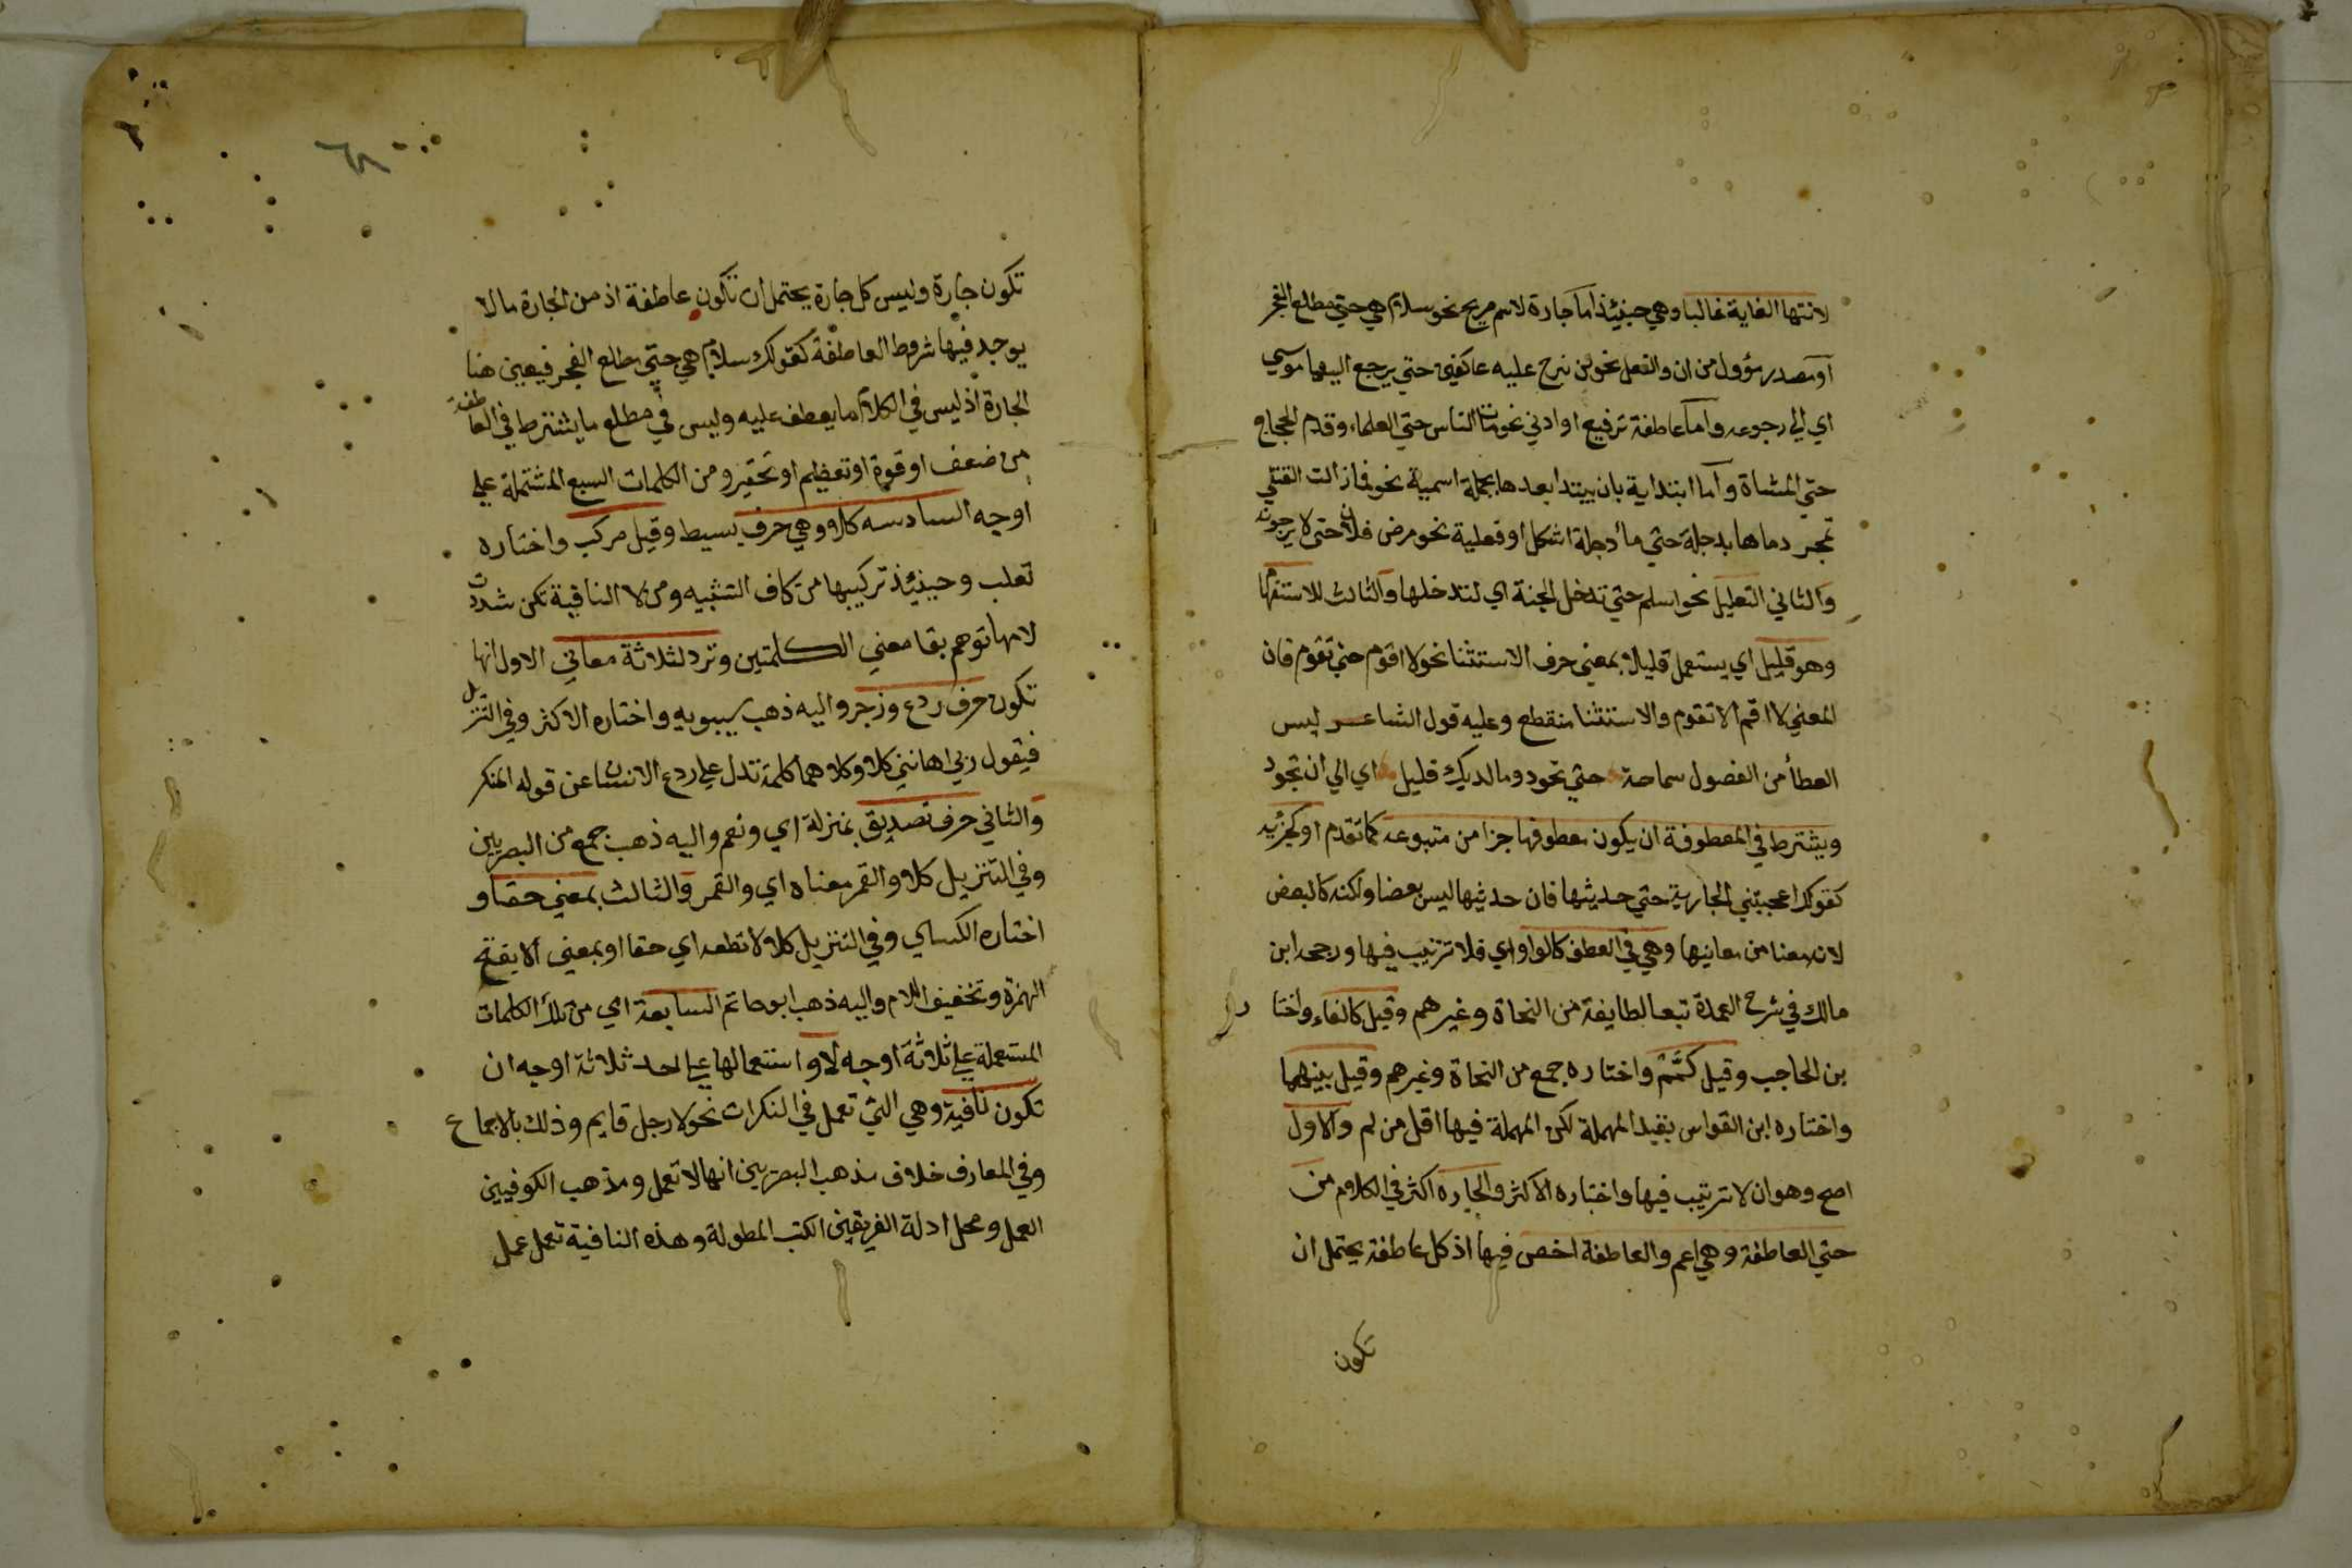 لانتها الغاية غالبا وهي حينئذ اما جارة لاسم صريح نحو سلام هي حتى مطلع الفجر
او مصدر مؤول من ان والفعل نحو لن نبرح عليه عاكفين حتي يرجع الينا موسي
اي الي رجوعه واما عاطفة ترفيع او ادني نحو مات الناس حتي العلماء وقدم الحجاج
حتي المشاة واما ابتداية بان يبتدا بعدها بجملة اسمية نحو فمازالت القتلي
تمج دماها بدجلة حتي ماء دجلة اشكل او فعلية نحو مرض فلان حتي لا يرجونه
والثاني التعليل نحو اسلم حتي تدخل الجنة اي لتدخلها والثالث للاستثنا
وهو قليل اي يستعمل قليلا بمعني حرف الاستثنا نحو لا اقوم حتي تقوم فان
المعني لا اقم الا تقوم والاستثنا منقطع وعليه قول الشاعر ليس
العطأ من الفضول سماحة حتي تجود وما لديك قليل اي الي ان تجود
ويشترط في المعطوفة ان يكون معطوفها جزا من متبوعه كما تقدم او كجزئه
كقولك اعجبتني الجارية حتي حديثها فان حديثها ليس بعضا ولكنه كالبعض
لانه معنا من معانيها وهي في العطف كالواو اي فلا ترتيب فيها ورجحه ابن
مالك في شرح العمدة تبعا لطايفة من النحاة وغيرهم وقيل كالفاء واختا ر
بن الحاجب وقيل كثم واختاره جمع من النحاة وغيرهم وقيل بينهما
واختاره ابن القواس بقيد المهملة لكن المهملة فيها اقل من ثم والاول
اصح وهو ان لا ترتيب فيها واختاره الاكثر والجارة اكثر في الكلام من
حتي العاطفة وهي اعم والعاطفة اخص فيها اذ كل عاطفة يحتمل ان
تكون
٦٨
تكون جارة وليس كل جارة يحتمل ان تكون عاطفة اذ من الجارة ما لا
يوجد فيها شروط العاطفة كقولك سلام هي حتي مطلع الفجر فيعين هنا
الجارة اذ ليس في الكلام ما يعطف عليه وليس في مطلع ما يشترط في العاطفة
من ضعف او قوة او تعظيم او تحقير ومن الكلمات السبع المشتملة علي
اوجه السادسه كلا وهي حرف بسيط وقيل مركب واختاره
ثعلب وحينئذ تركيبها من كاف التشبيه ومن لا النافية لكن شددت
لامها توهم بقا معني الكلمتين وترد لثلاثة معاني الاول انها
تكون حرف ردع وزجر واليه ذهب سيبويه واختاره الاكثر وفي التنزيل
فيقول ربي اهانني كلا وكلا هما كلمة تدل علي ردع الانسان عن قوله المنكر
والثاني حرف تصديق بمنزلة اي ونعم واليه ذهب جمع من البصريين
وفي التنزيل كلا والقمر معناه اي والقمر والثالث بمعني حقا و
اختاره الكساي وفي التنزيل كلا لا تطعه اي حقا او بمعني ألا بفتح
الهمزة وتخفيف اللام واليه ذهب ابو حاتم السابعة اي من تلك الكلمات
المستعملة علي ثلاثة اوجه لا واستعمالها علي احد ثلاثة اوجه ان
تكون نافية وهي التي تعمل في النكرات نحو لا رجل قايم وذلك بالاجماع
وفي المعارف خلاف مذهب البصريين انها لا تعمل ومذهب الكوفيين
العمل ومحل ادلة الفريقين الكتب المطولة وهذه النافية تعمل عمل